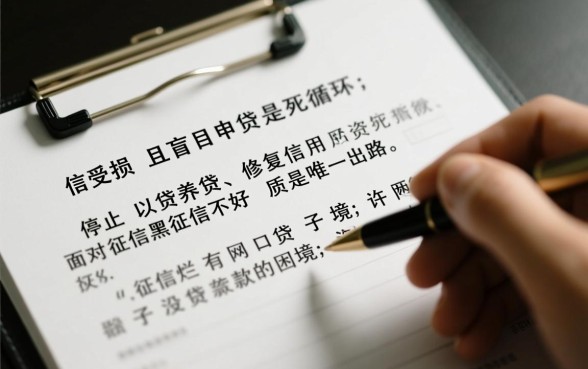 信受损 且盲目申贷是死循环；
停止 以贷养贷、修复信用
面对征信黑征信不好 质是唯一出路。
"征信烂 有网口贷 子境；许
子没贷款的困境；